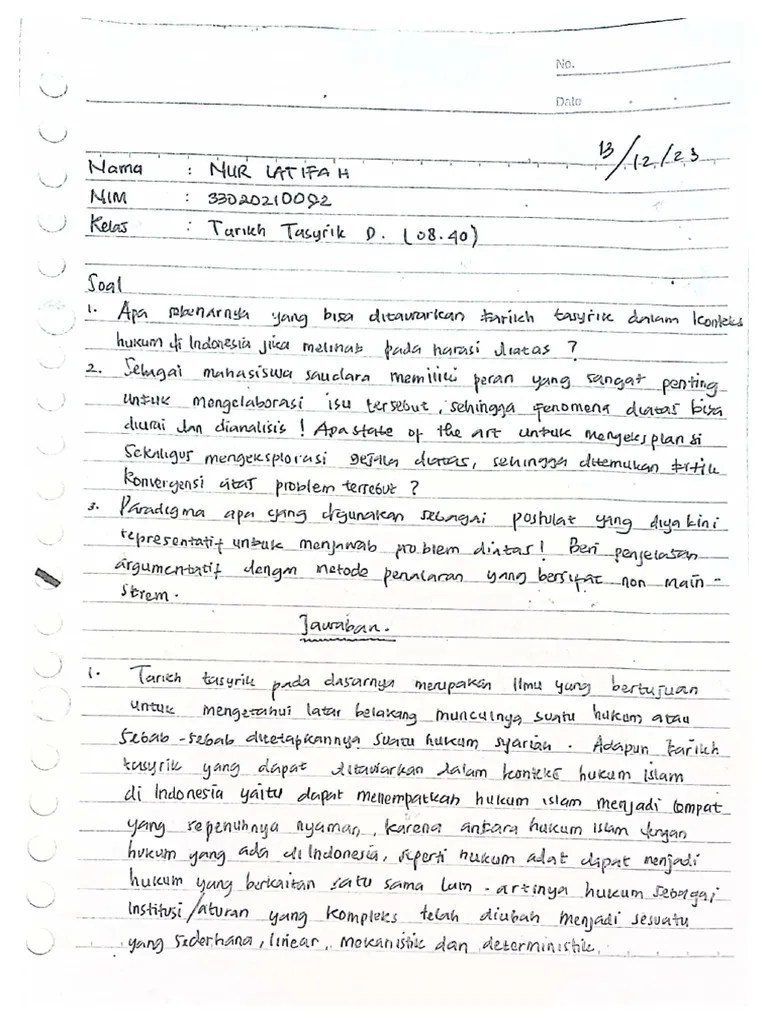 No.
Date
13/12/23
Nama : NUR LATIFAH
NIM : 33020210092
Kelas : Tarikh Tasyrik D. (08.40)
Soal
1. Apa sebenarnya yang bisa ditawarkan tarikh tasyrik dalam konteks
hukum di Indonesia jika melihat pada narasi diatas ?
2. Sebagai mahasiswa saudara memiliki peran yang sangat penting
untuk mengelaborasi isu tersebut, sehingga fenomena diatas bisa
diurai dan dianalisis ! Apa state of the art untuk mengeksplansi
Sekaligus mengeksplorasi gejala diatas, sehingga ditemukan titik
konvergensi atas problem tersebut ?
3. Paradigma apa yang digunakan sebagai postulat yang diyakini
representatif untuk menjawab problem diatas ! Beri penjelasan
argumentatif dengan metode penalaran yang bersifat non main-
strem.
Jawaban.
1. Tarikh tasyrik pada dasarnya merupakan Ilmu yang bertujuan
untuk mengetahui latar belakang munculnya suatu hukum atau
Sebab-sebab ditetapkannya suatu hukum syariah. Adapun tarikh
tasyrik yang dapat ditawarkan dalam konteks hukum islam
di Indonesia yaitu dapat menempatkan hukum islam menjadi tempat
yang sepenuhnya nyaman, karena antara hukum islam dengan
hukum yang ada di Indonesia, seperti hukum adat dapat menjadi
hukum yang berkaitan satu sama lain - artinya hukum sebagai
Institusi/aturan yang kompleks telah diubah menjadi sesuatu
yang sederhana, linear, mekanistik dan deterministik.